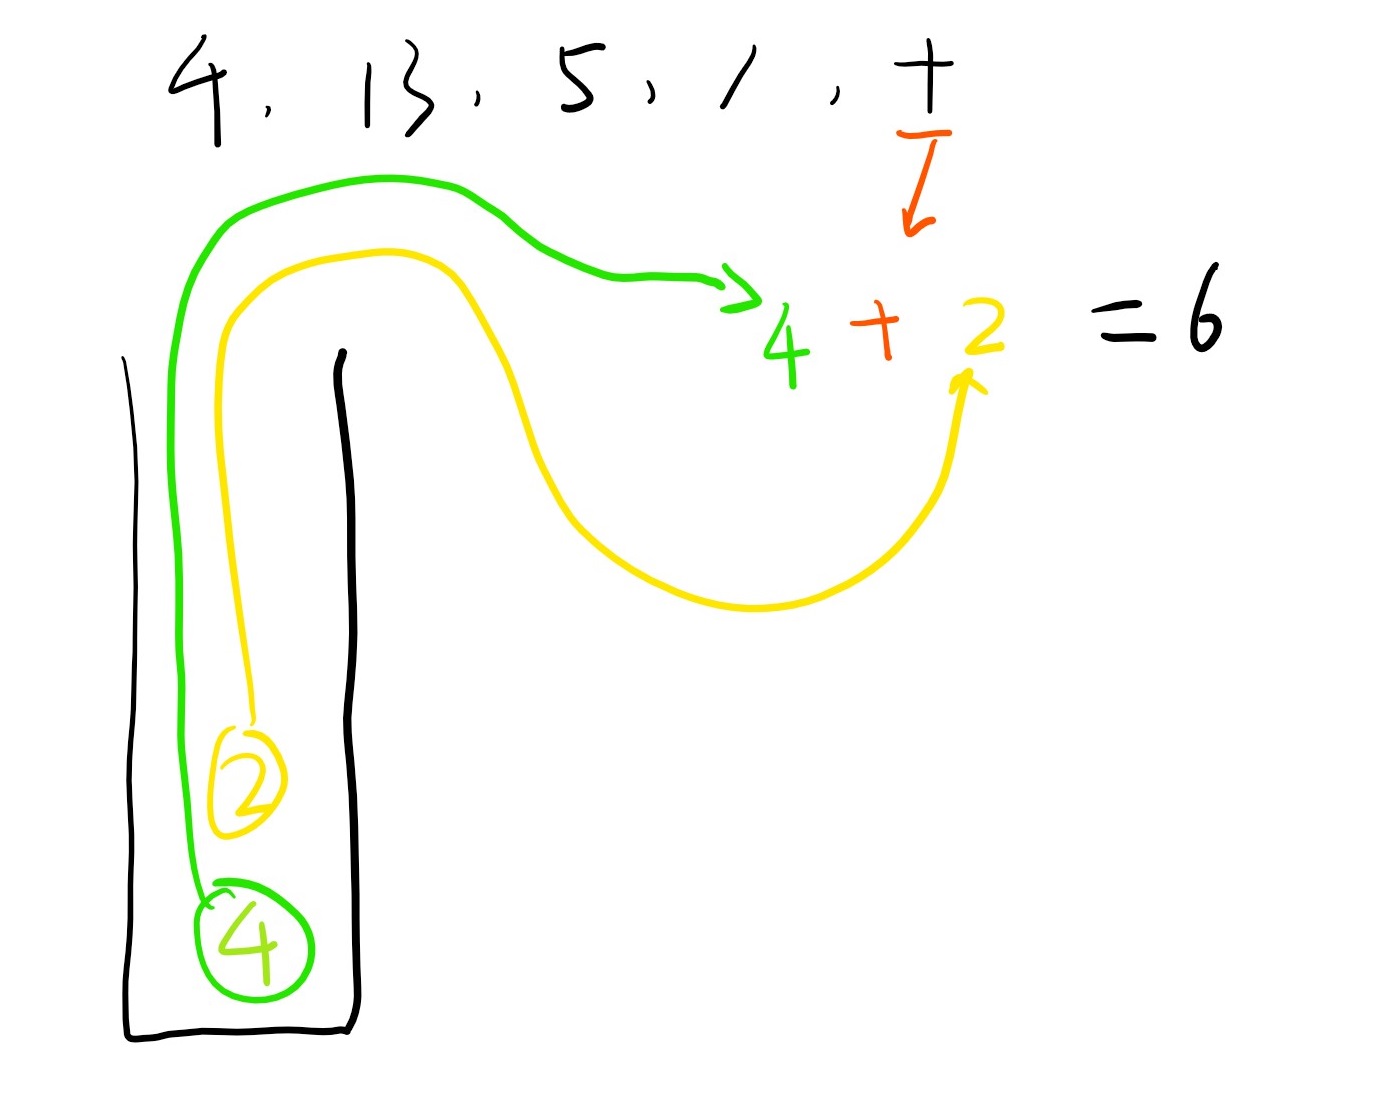 4, 13, 5, /, +
4 + 2 = 6
2
4